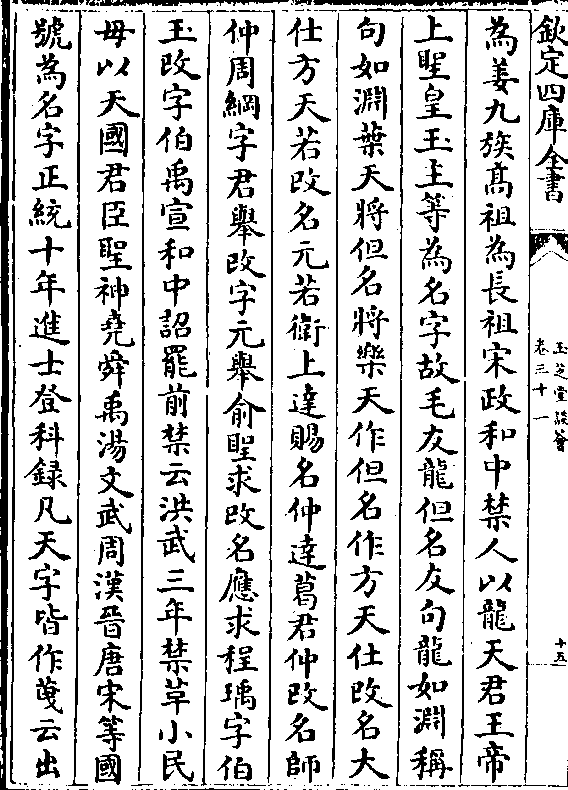 欽定四庫全書
玉芝堂談薈
卷三十一
十五
為姜九族髙祖為長祖宋政和中禁人以龍天君王帝
上聖皇玉主等為名字故毛友龍但名友句龍如淵稱
句如淵葉天將但名將樂天作但名作方天仕改名大
仕方天若改名元若衛上達賜名仲達葛君仲改名師
仲周綱字君舉改字元舉俞聖求改名應求程瑀字伯
玉改字伯禹宣和中詔罷前禁云洪武三年禁革小民
毋以天國君臣聖神堯舜禹湯文武周漢晉唐宋等國
號為名字正統十年進士登科録凡天字皆作䔑云出